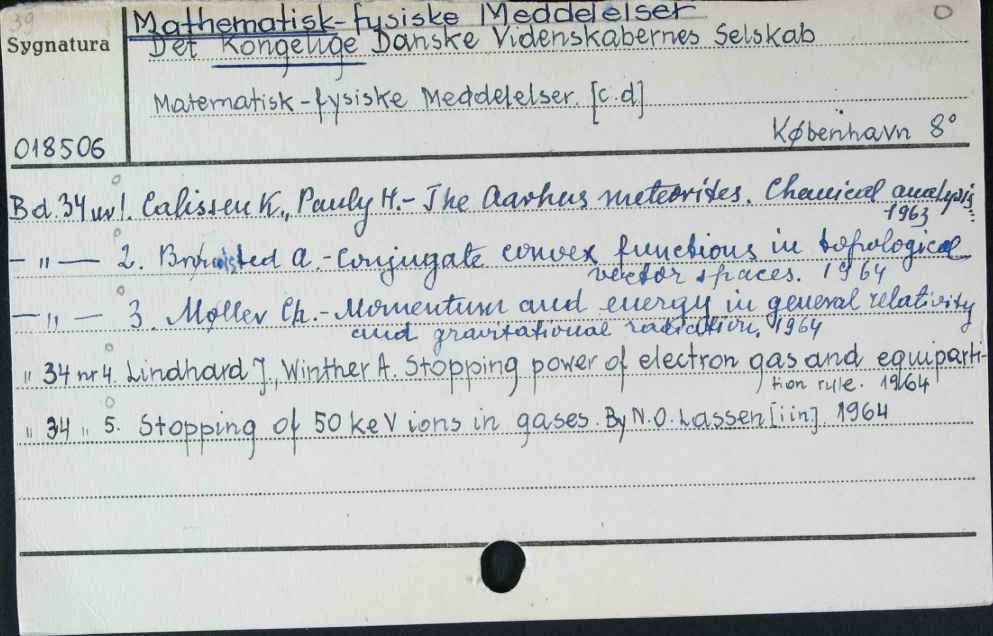 39
Mathematisk-fysiske Meddelelser
O
Sygnatura
Det Kongelige Danske Videnskabernes Selskab
Matematisk-fysiske Meddelelser. [c.d]
København 8°
018506
Bd. 34 nr 1. Calissen K., Pauly H. - The Aarhus meteorites. Chemical analysis.
1963
— " — 2. A. - Conjugate convex functions in topological
vector spaces. 1964
— " — 3. Møller Ch. - Momentum and energy in general relativity
and gravitational radiation. 1964
" 34 nr 4. Lindhard J., Winther A. Stopping power of electron gas and equiparti-
tion rule. 1964
" 34 " 5. Stopping of 50 keV ions in gases. By N.O. Lassen [i in]. 1964